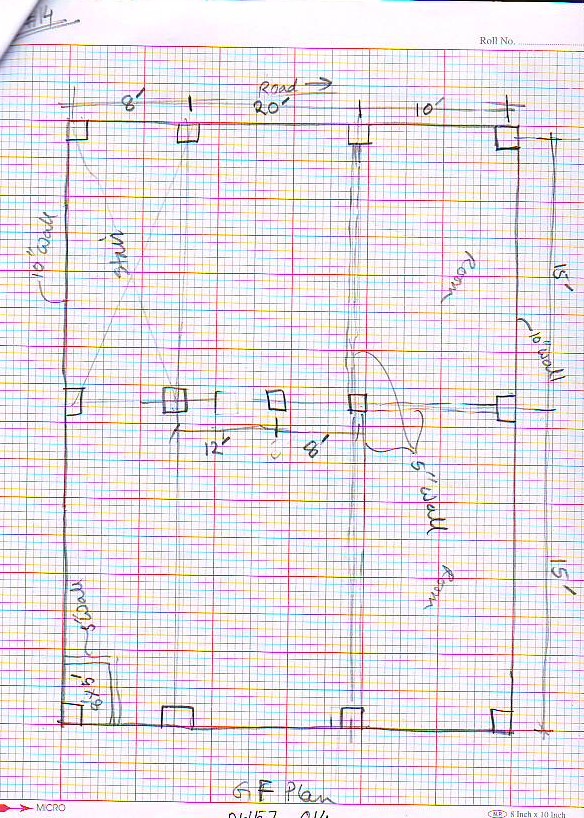 #14
Roll No.
Road →
8' 20' 10'
10" Wall
Stair
Room
15'
10" Wall
12' 8'
5" Wall
Room
15'
5" Wall
6'x5'
GF Plan
MICRO
8 Inch x 10 Inch